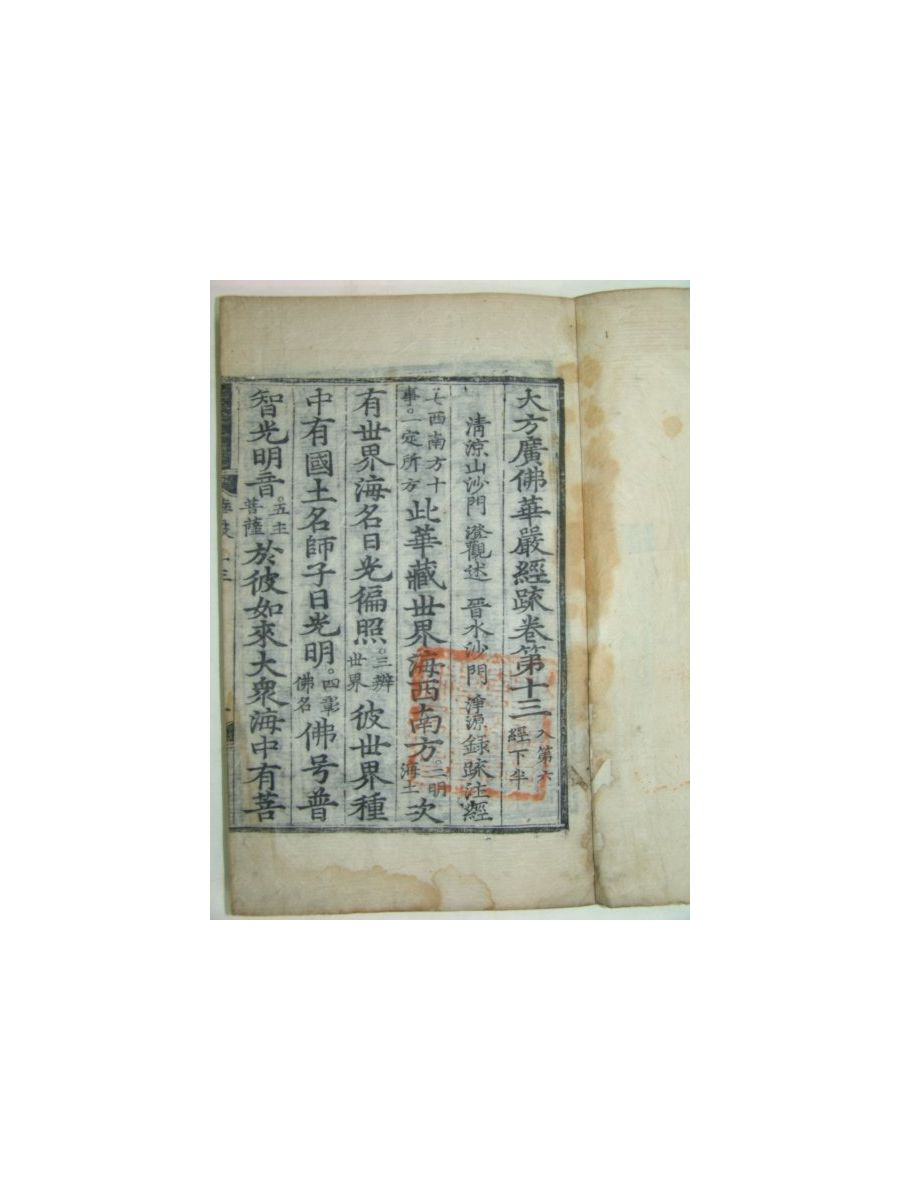 大方廣佛華嚴經䟽卷第十三 入第六經下半
清涼山沙門 澄觀述 晉水沙門 淨源録䟽注經
七西南方十事。一定所方 此華藏世界海西南方。二明海土 次
有世界海名日光徧照。三辨世界 彼世界種
中有國土名師子日光明。四彰佛名 佛号普
智光明音。五主菩薩 於彼如來大衆海中有菩